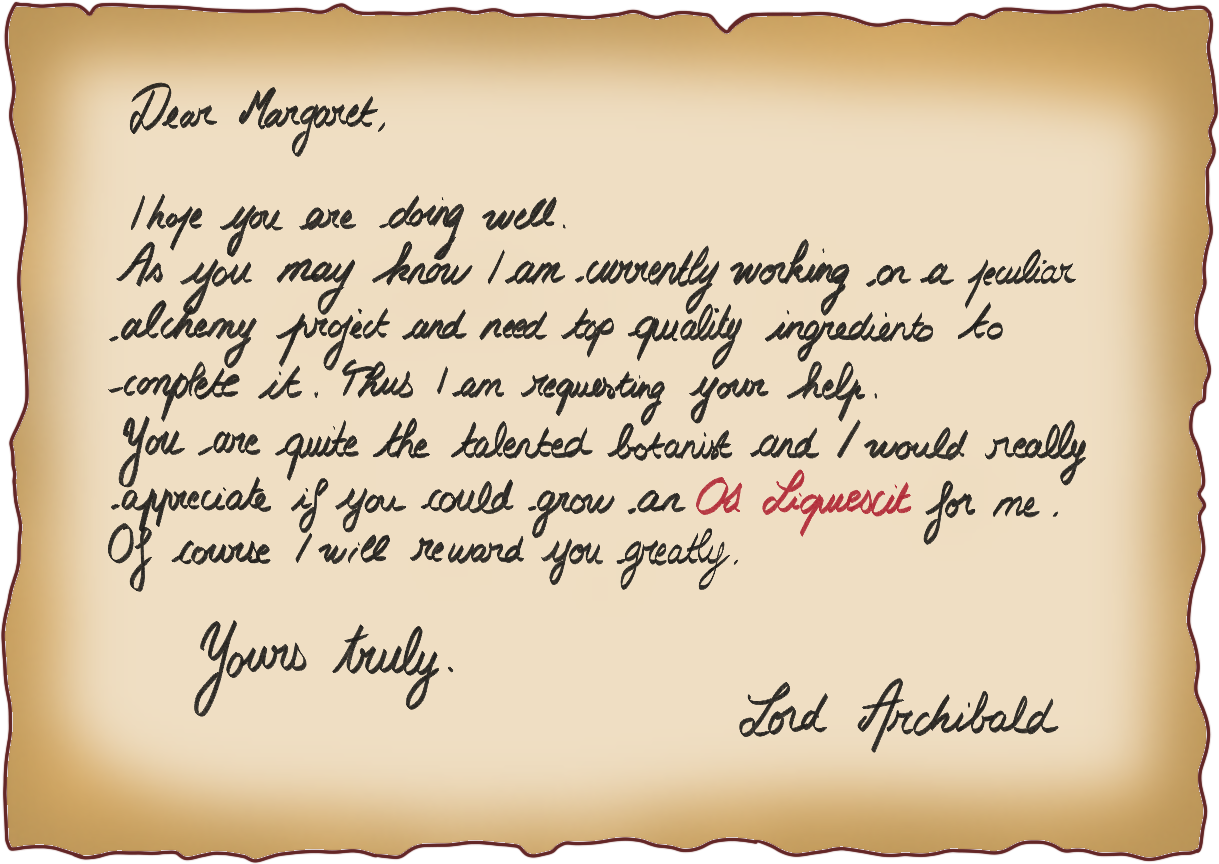 Dear Margaret,
I hope you are doing well.
As you may know I am currently working on a peculiar
alchemy project and need top quality ingredients to
complete it. Thus I am requesting your help.
You are quite the talented botanist and I would really
appreciate if you could grow an Os Liquescit for me.
Of course I will reward you greatly.
Yours truly.
Lord Archibald